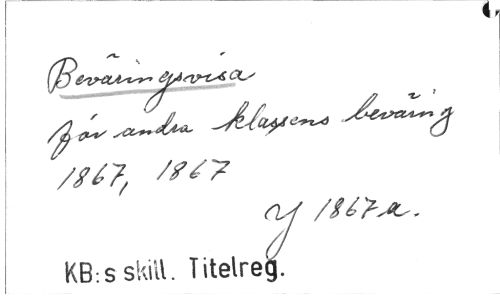 Beväringsvisa
för andra klassens beväring
1867, 1867
Y 1867 a.
KB:s skill. Titelreg.